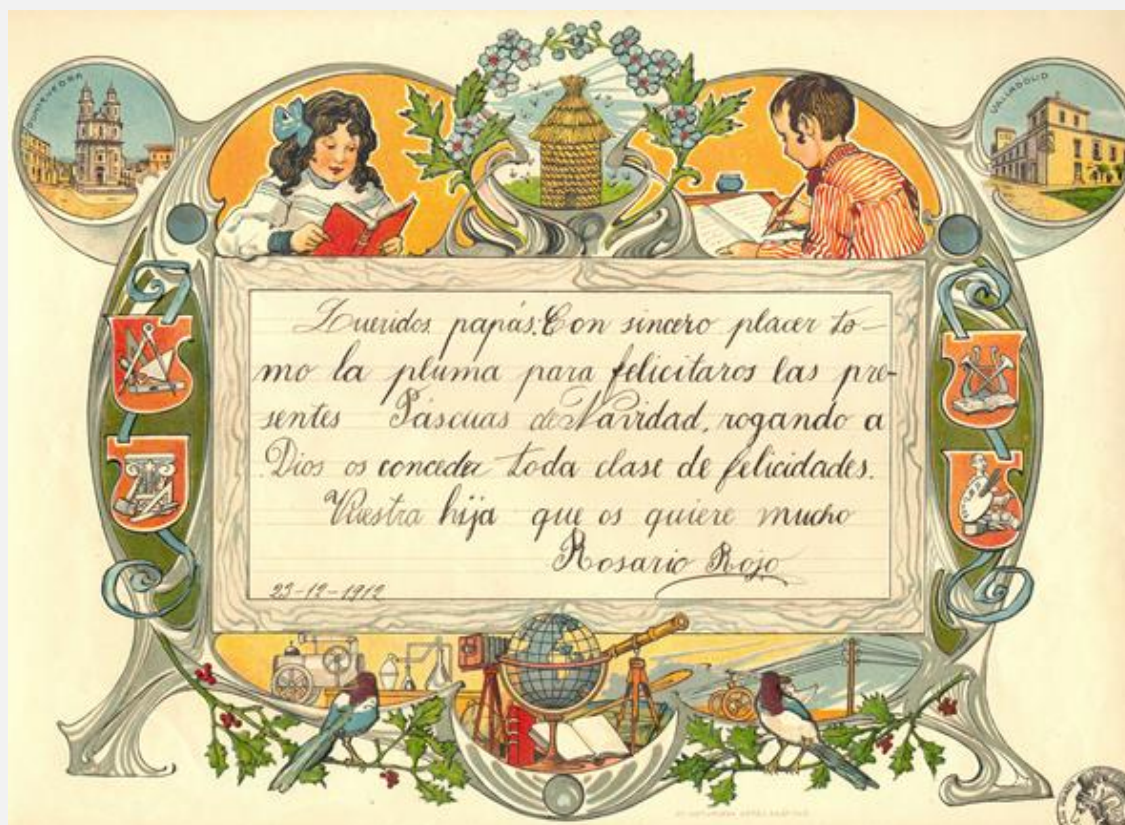 PONTEVEDRA
VALLADOLID
Queridos papás: Con sincero placer to-
mo la pluma para felicitaros las pre-
sentes Páscuas de Navidad, rogando a
Dios os conceda toda clase de felicidades.
Vuestra hija que os quiere mucho
Rosario Rojo
23-12-1912